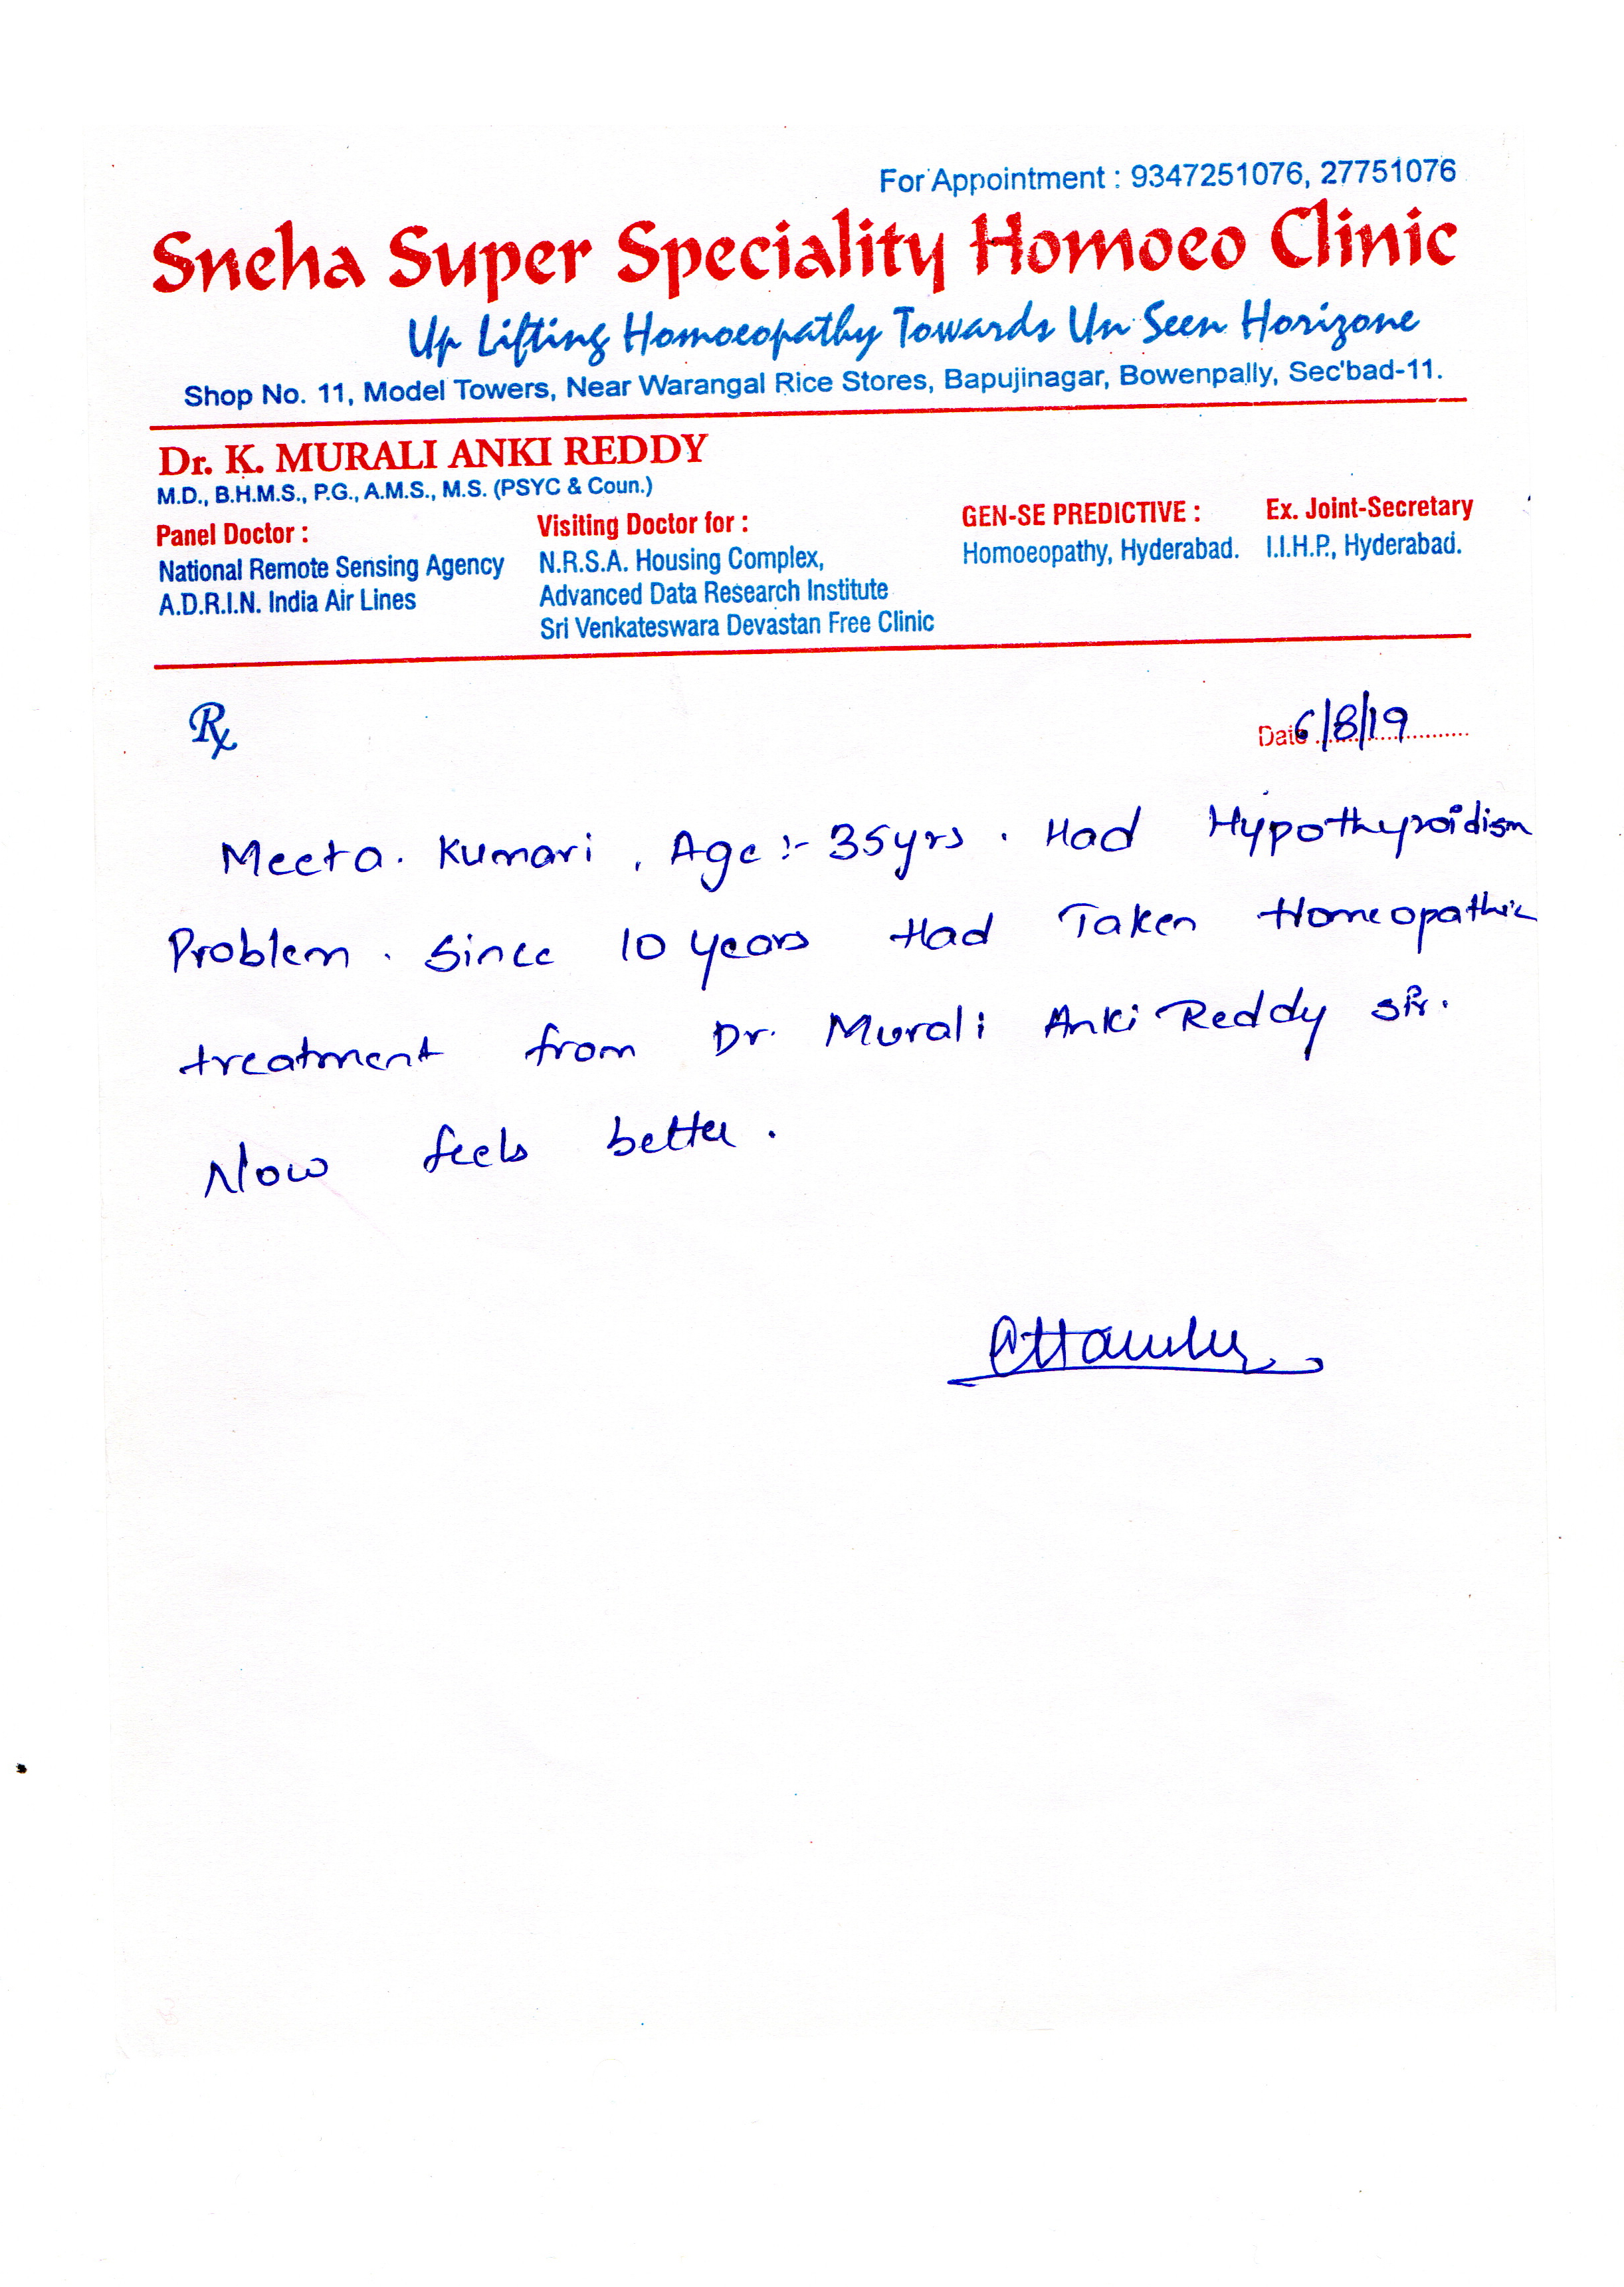 For Appointment : 9347251076, 27751076
Sneha Super Speciality Homoeo Clinic
Up Lifting Homoeopathy Towards Un Seen Horizone
Shop No. 11, Model Towers, Near Warangal Rice Stores, Bapujinagar, Bowenpally, Sec'bad-11.
Dr. K. MURALI ANKI REDDY
M.D., B.H.M.S., P.G., A.M.S., M.S. (PSYC & Coun.)
Panel Doctor :
National Remote Sensing Agency
A.D.R.I.N. India Air Lines
Visiting Doctor for :
N.R.S.A. Housing Complex,
Advanced Data Research Institute
Sri Venkateswara Devastan Free Clinic
GEN-SE PREDICTIVE :
Homoeopathy, Hyderabad.
Ex. Joint-Secretary
I.I.H.P., Hyderabad.
Rx
Date 6/8/19
Meeta. Kumari , Age :- 35yrs . Had Hypothyroidism
Problem . Since 10 years Had Taken Homeopathic
treatment from Dr. Murali Anki Reddy sir.
Now feels better .